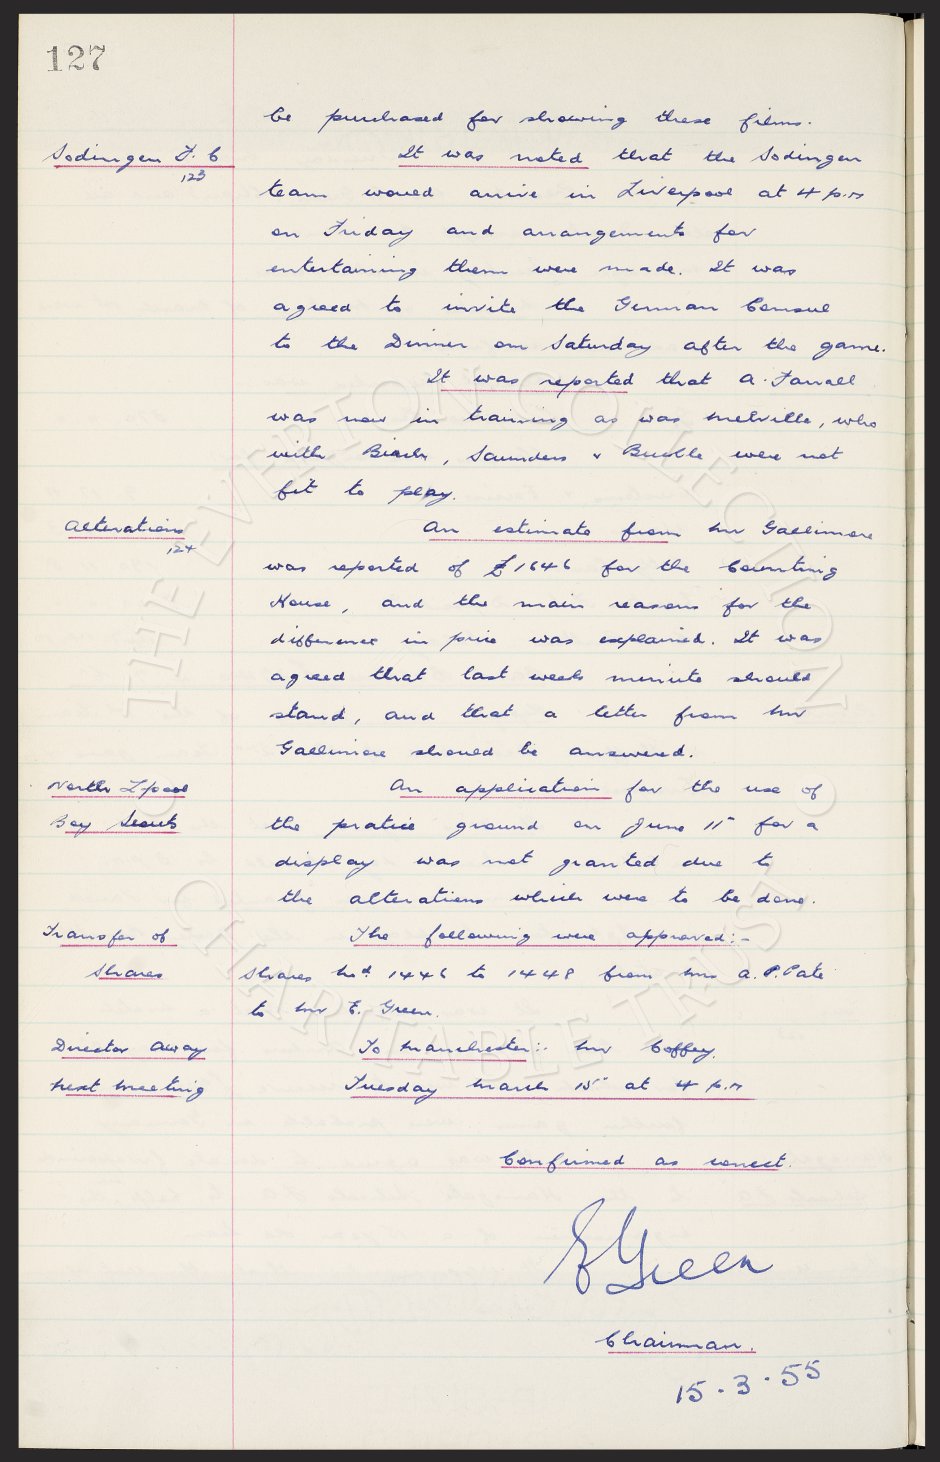 127
be purchased for showing these films.
Sodingen F. C It was noted that the Sodingen
123
team would arrive in Liverpool at 4 p.m
on Friday and arrangements for
entertaining them were made. It was
agreed to invite the German Consul
to the Dinner on Saturday after the game.
It was reported that A. Farrall
was now in training as was Melville, who
with Birch, Saunders & Buckle were not
fit to play.
Alterations An estimate from Mr Gallimore
124
was reported of £1646 for the Counting
House, and the main reasons for the
difference in price was explained. It was
agreed that last weeks minute should
stand, and that a letter from Mr
Gallimore should be answered.
North L'pool An application for the use of
Boy Scouts the pratice ground on June 11" for a
display was not granted due to
the alterations which were to be done.
Transfer of The following were approved:-
Shares Shares Nos. 1446 to 1448 from Mrs A. P. Pate
to Mr E. Green.
Director Away To Manchester:- Mr Coffey.
Next Meeting Tuesday March 15" at 4 p.m
Confirmed as correct.
E Green
Chairman.
15.3.55
THE EVERTON COLLECTION
CHARITABLE TRUST